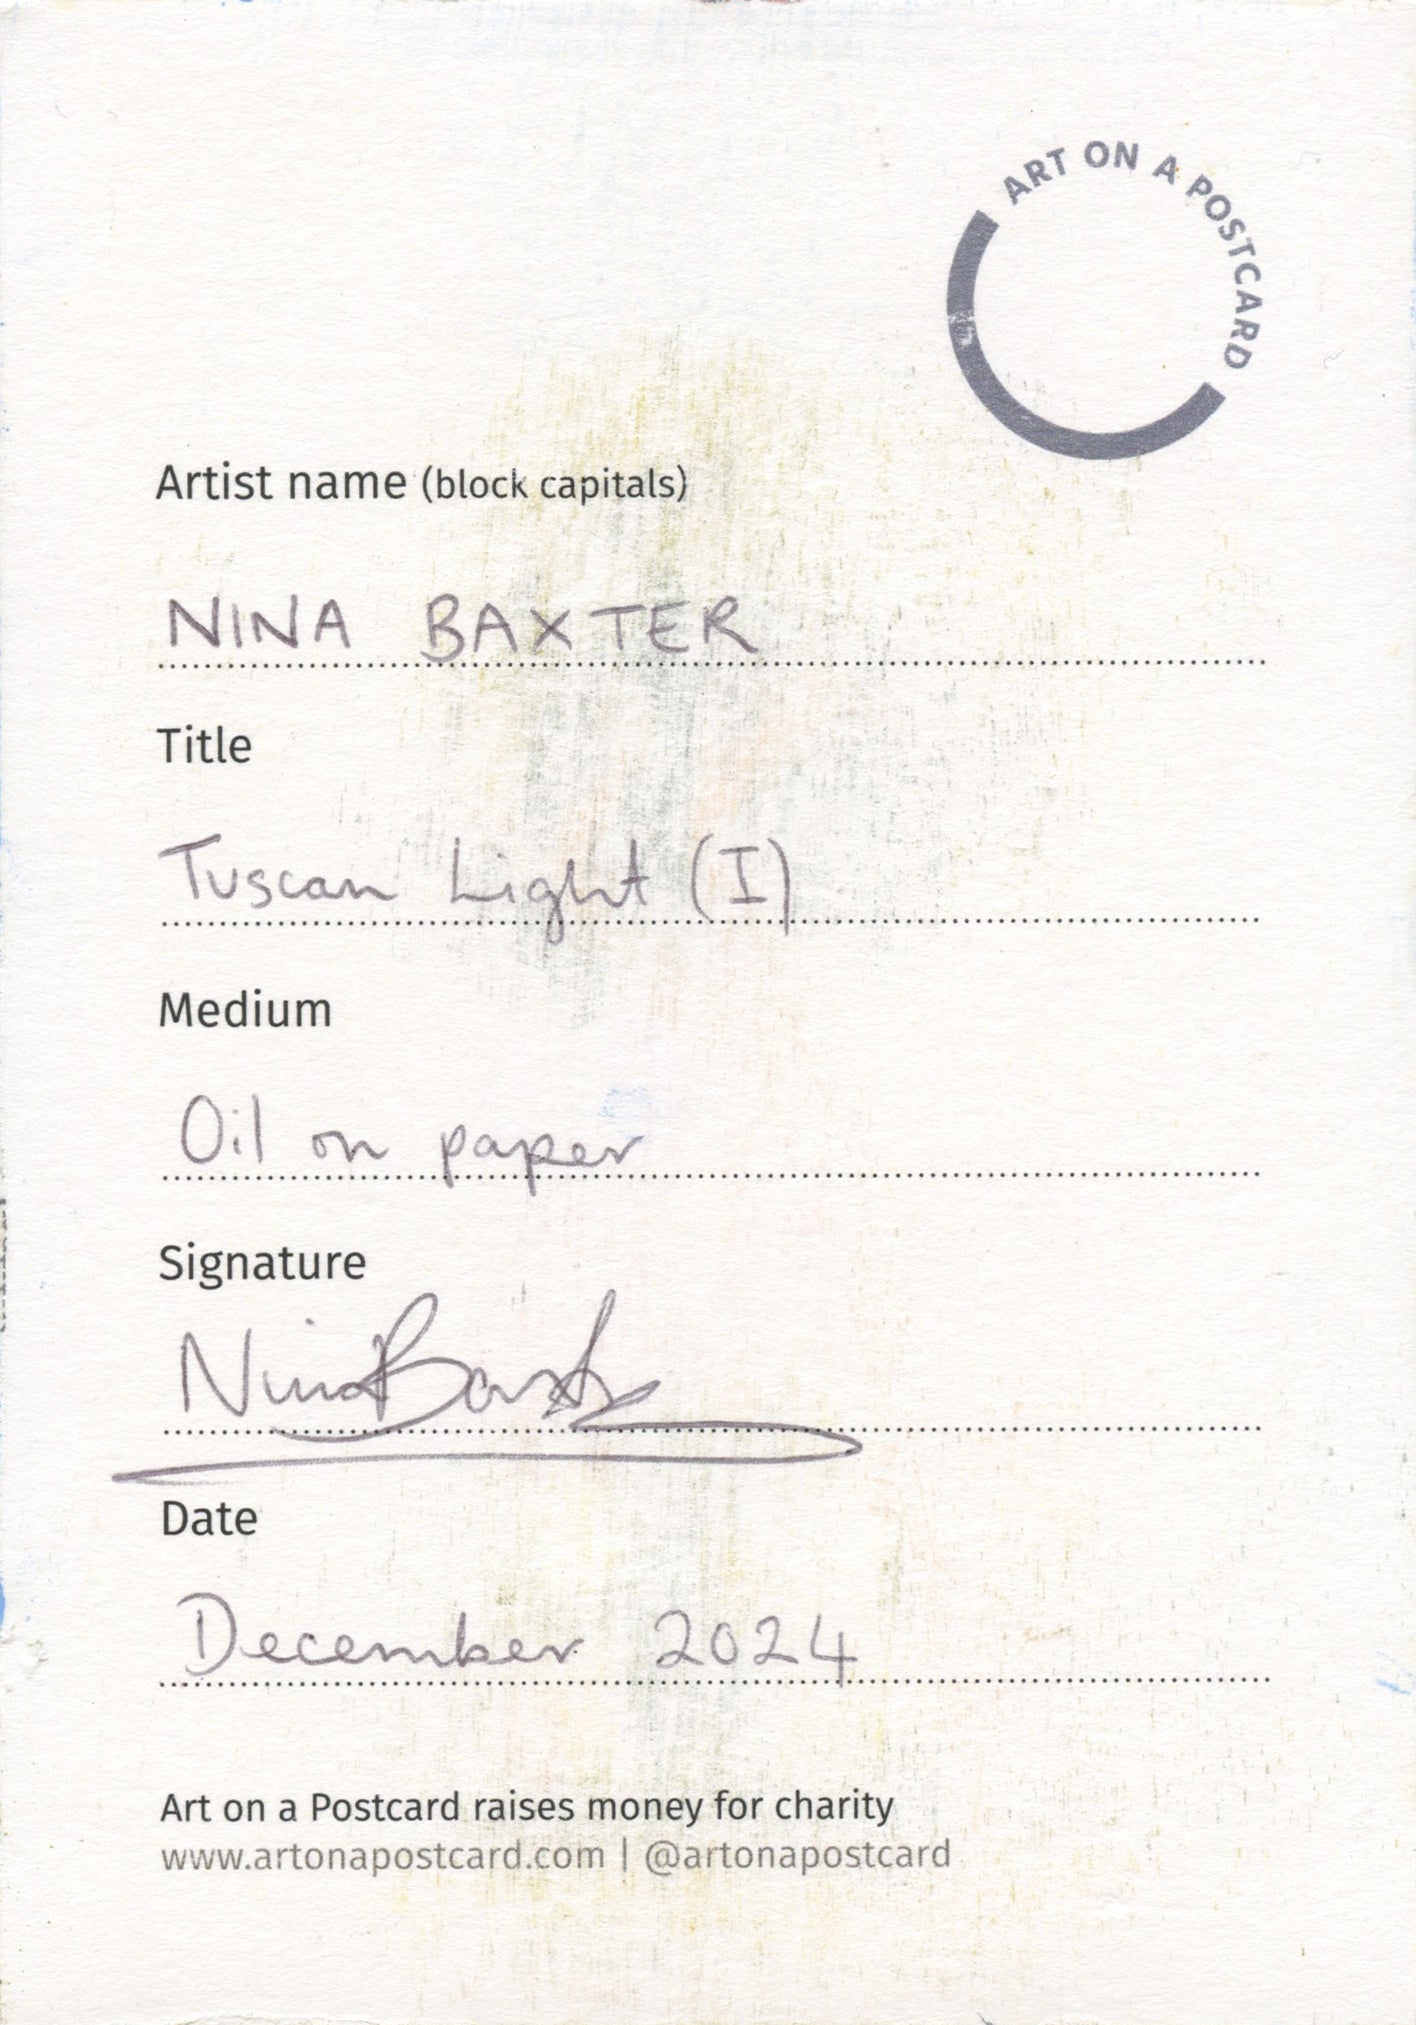 ART ON A POSTCARD
Artist name (block capitals)
NINA BAXTER
Title
Tuscan Light (I)
Medium
Oil on paper
Signature
Nina Baxter
Date
December 2024
Art on a Postcard raises money for charity
www.artonapostcard.com | @artonapostcard